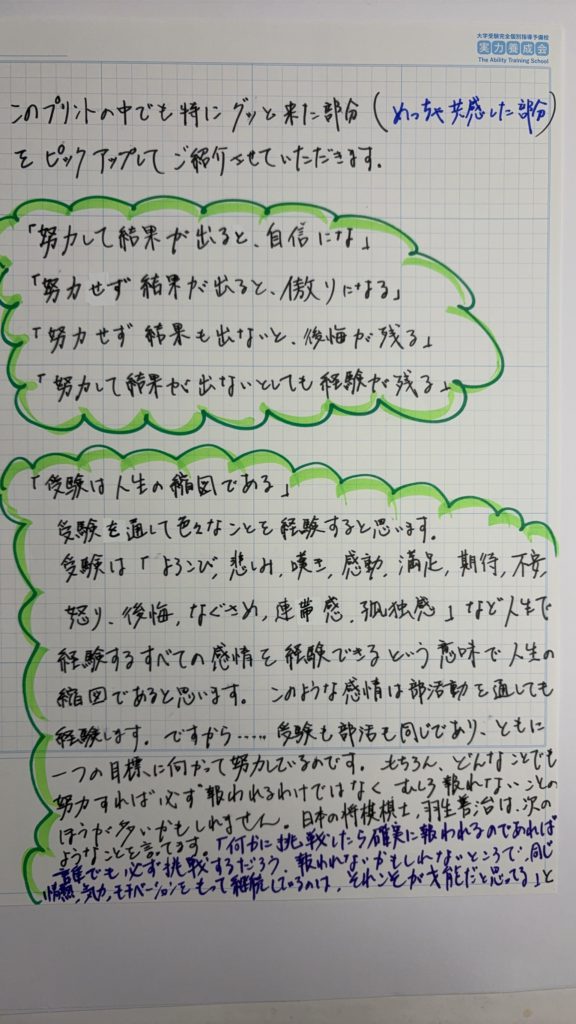 大学受験完全個別指導予備校
実力養成会
The Ability Training School
このプリントの中でも特にグッと来た部分(めっちゃ共感した部分)
をピックアップしてご紹介させていただきます.
「努力して結果が出ると、自信にな」
「努力せず結果が出ると、傲りになる」
「努力せず結果も出ないと、後悔が残る」
「努力して結果が出ないとしても経験が残る」
「受験は人生の縮図である」
受験を通して色々なことを経験すると思います.
受験は「よろこび, 悲しみ, 嘆き, 感動, 満足, 期待, 不安,
怒り, 後悔, なぐさめ, 連帯感, 孤独感」など人生で
経験するすべての感情を経験できるという意味で人生の
縮図であると思います. このような感情は部活動を通しても
経験します. ですから..... 受験も部活も同じであり、ともに
一つの目標に向かって努力しているのです. もちろん、どんなことでも
努力すれば必ず報われるわけではなくむしろ報れないことの
ほうが多いかもしれません. 日本の将棋棋士, 羽生善治は、次の
ようなことを言てます.「何かに挑戦したら確実に報われるのであれば
誰でも必ず挑戦するだろう, 報われないかもしれないところで, 同じ
情熱, 気力, モチベーションをもって継続しているのは, それこそが才能だと思ってる」と